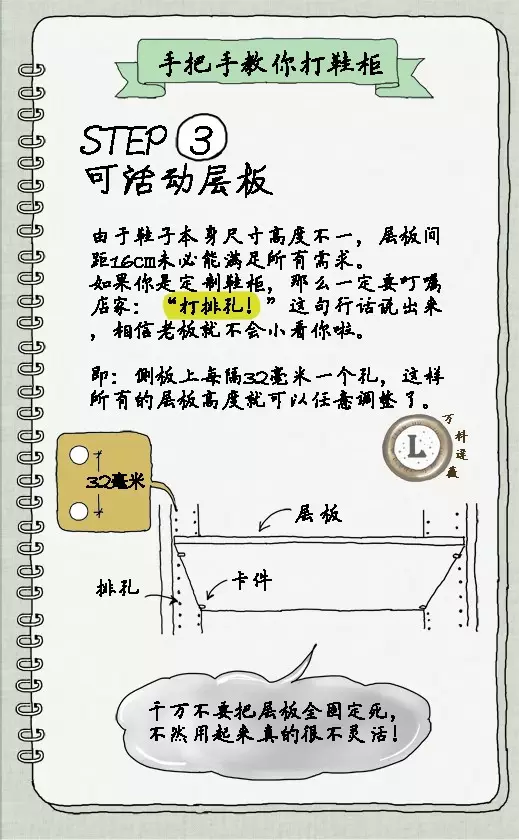 手把手教你打鞋柜
STEP 3
可活动层板
由于鞋子本身尺寸高度不一，层板间
距16cm未必能满足所有需求。
如果你是定制鞋柜，那么一定要叮嘱
店家：“打排孔！”这句行话说出来
，相信老板就不会小看你啦。
即：侧板上每隔32毫米一个孔，这样
所有的层板高度就可以任意调整了。
L
万科逆藏
32毫米
层板
卡件
排孔
千万不要把层板全固定死，
不然用起来真的很不灵活！